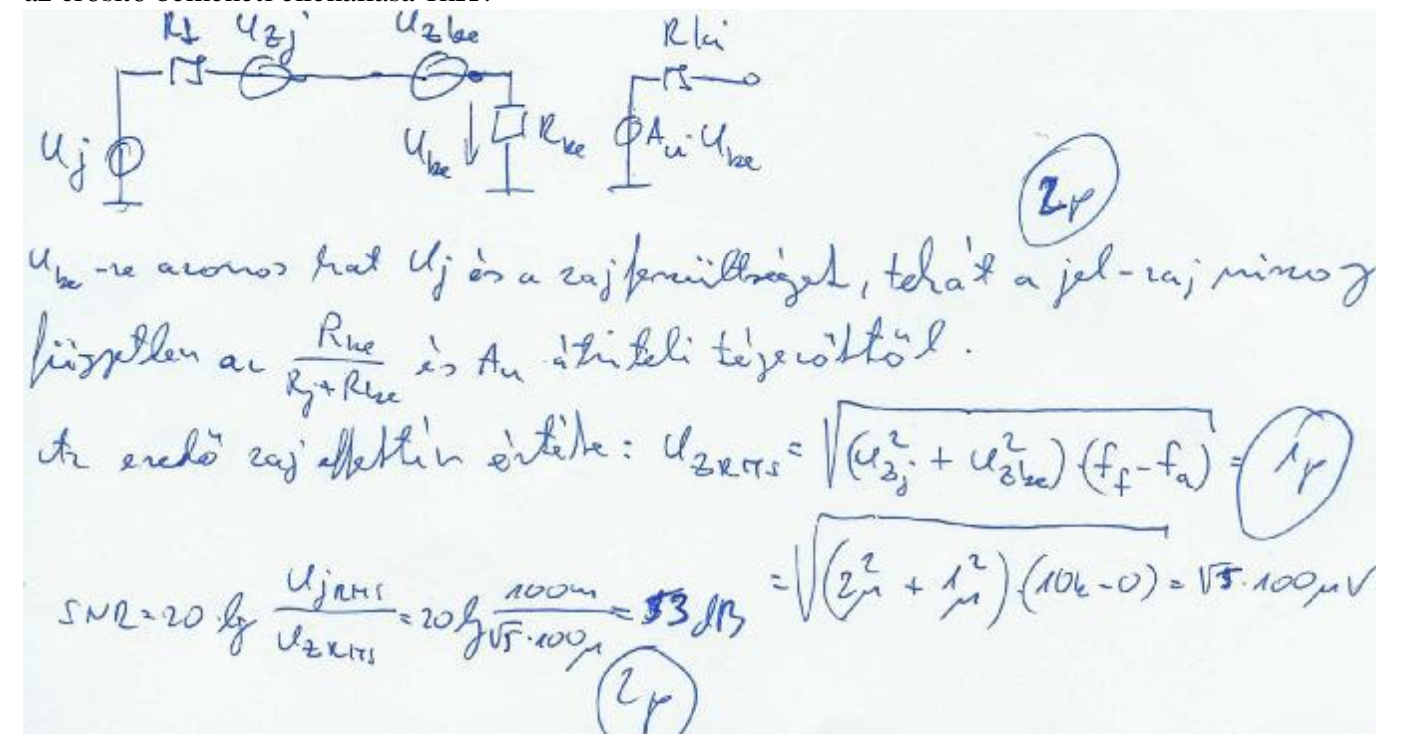 az erősítő bemeneti ellenállása 1kΩ?
R1 Uzj Uzbe Rki
Uj Ube Rbe Au·Ube
2p
Ube-re azonos hat Uj és a zajfeszültségek, tehát a jel-zaj viszony
független az Rbe/(Rj+Rbe) és Au átviteli tényezőktől.
Az eredő zaj effektív értéke: UZRMS = √((u²zj + u²zbe)(ff-fa)) = 1p
= √((2²μ + 1²μ)·(10k-0)) = √5·100μV
SNR=20·lg UjRMS/UZRMS = 20lg 100m/(√5·100μ) = 53dB
2p